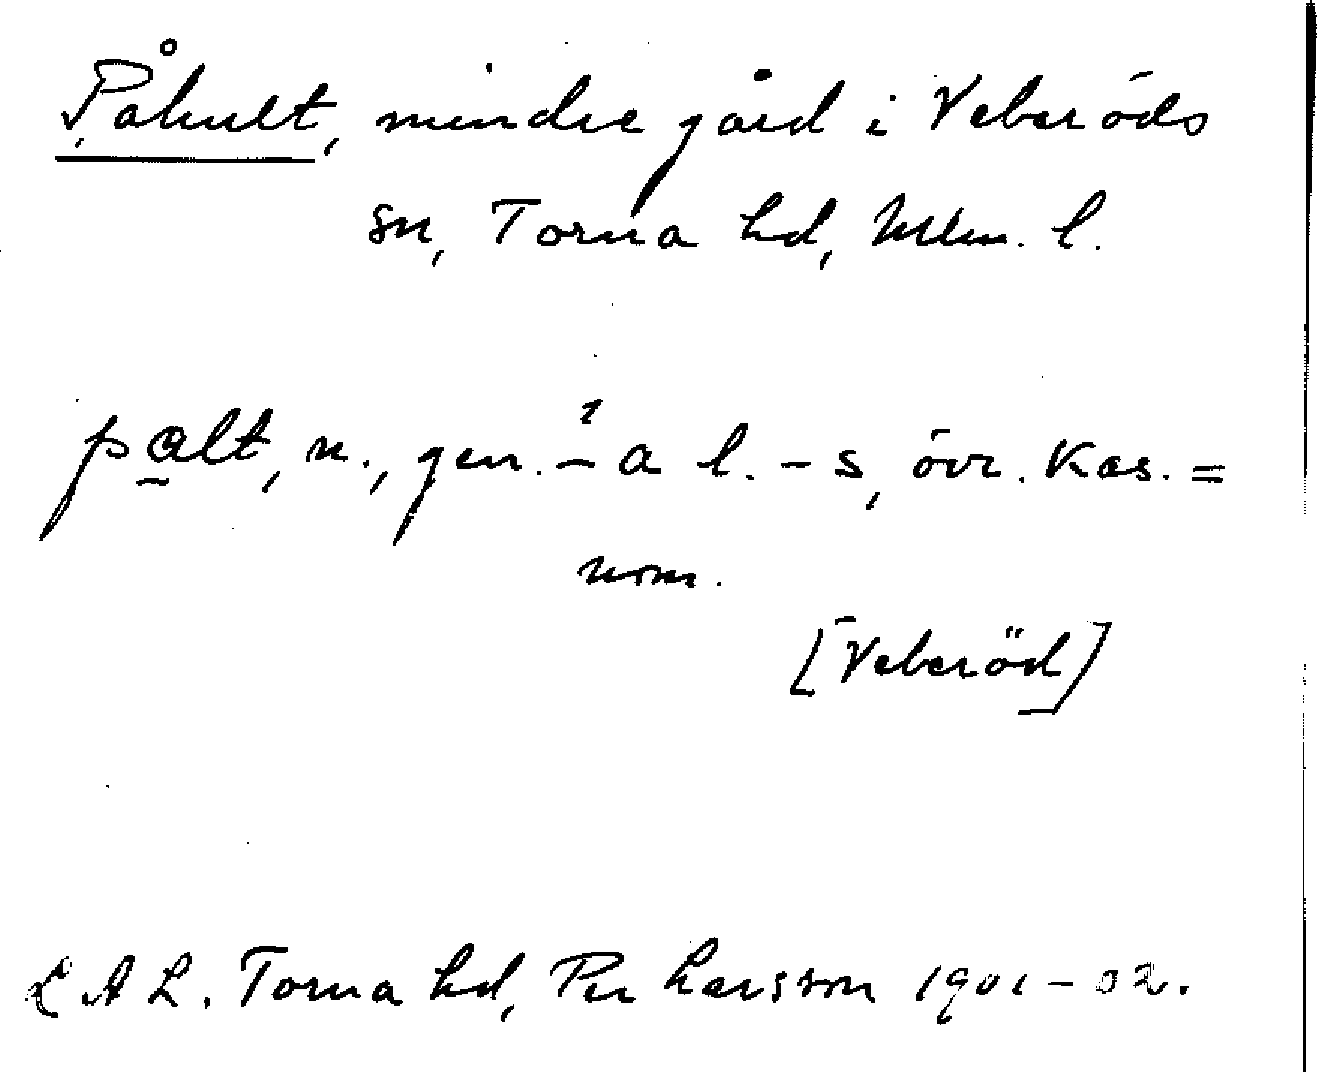 Påhult, mindre gård i Veberöds
sn, Torna hd, Mlm. l.
palt, n., gen. -́a l. -s, övr. Kas. =
nom.
[Veberöd]
LAL. Torna hd, Per Larsson 1901-02.